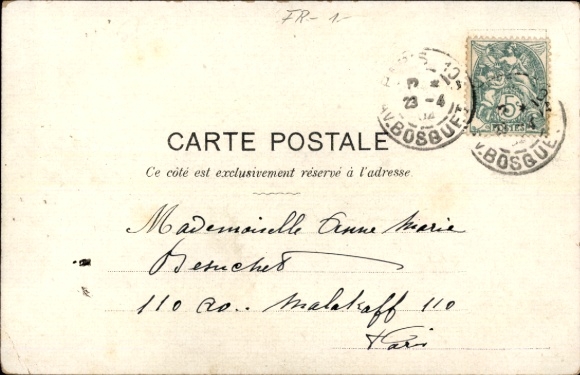 FR-1-
PARIS
23 -4
AV. BOSQUET
5
POSTES
CARTE POSTALE
Ce côté est exclusivement réservé à l'adresse
Mademoiselle Anne Marie
Besuchet
110 av. Malakoff 110
Paris